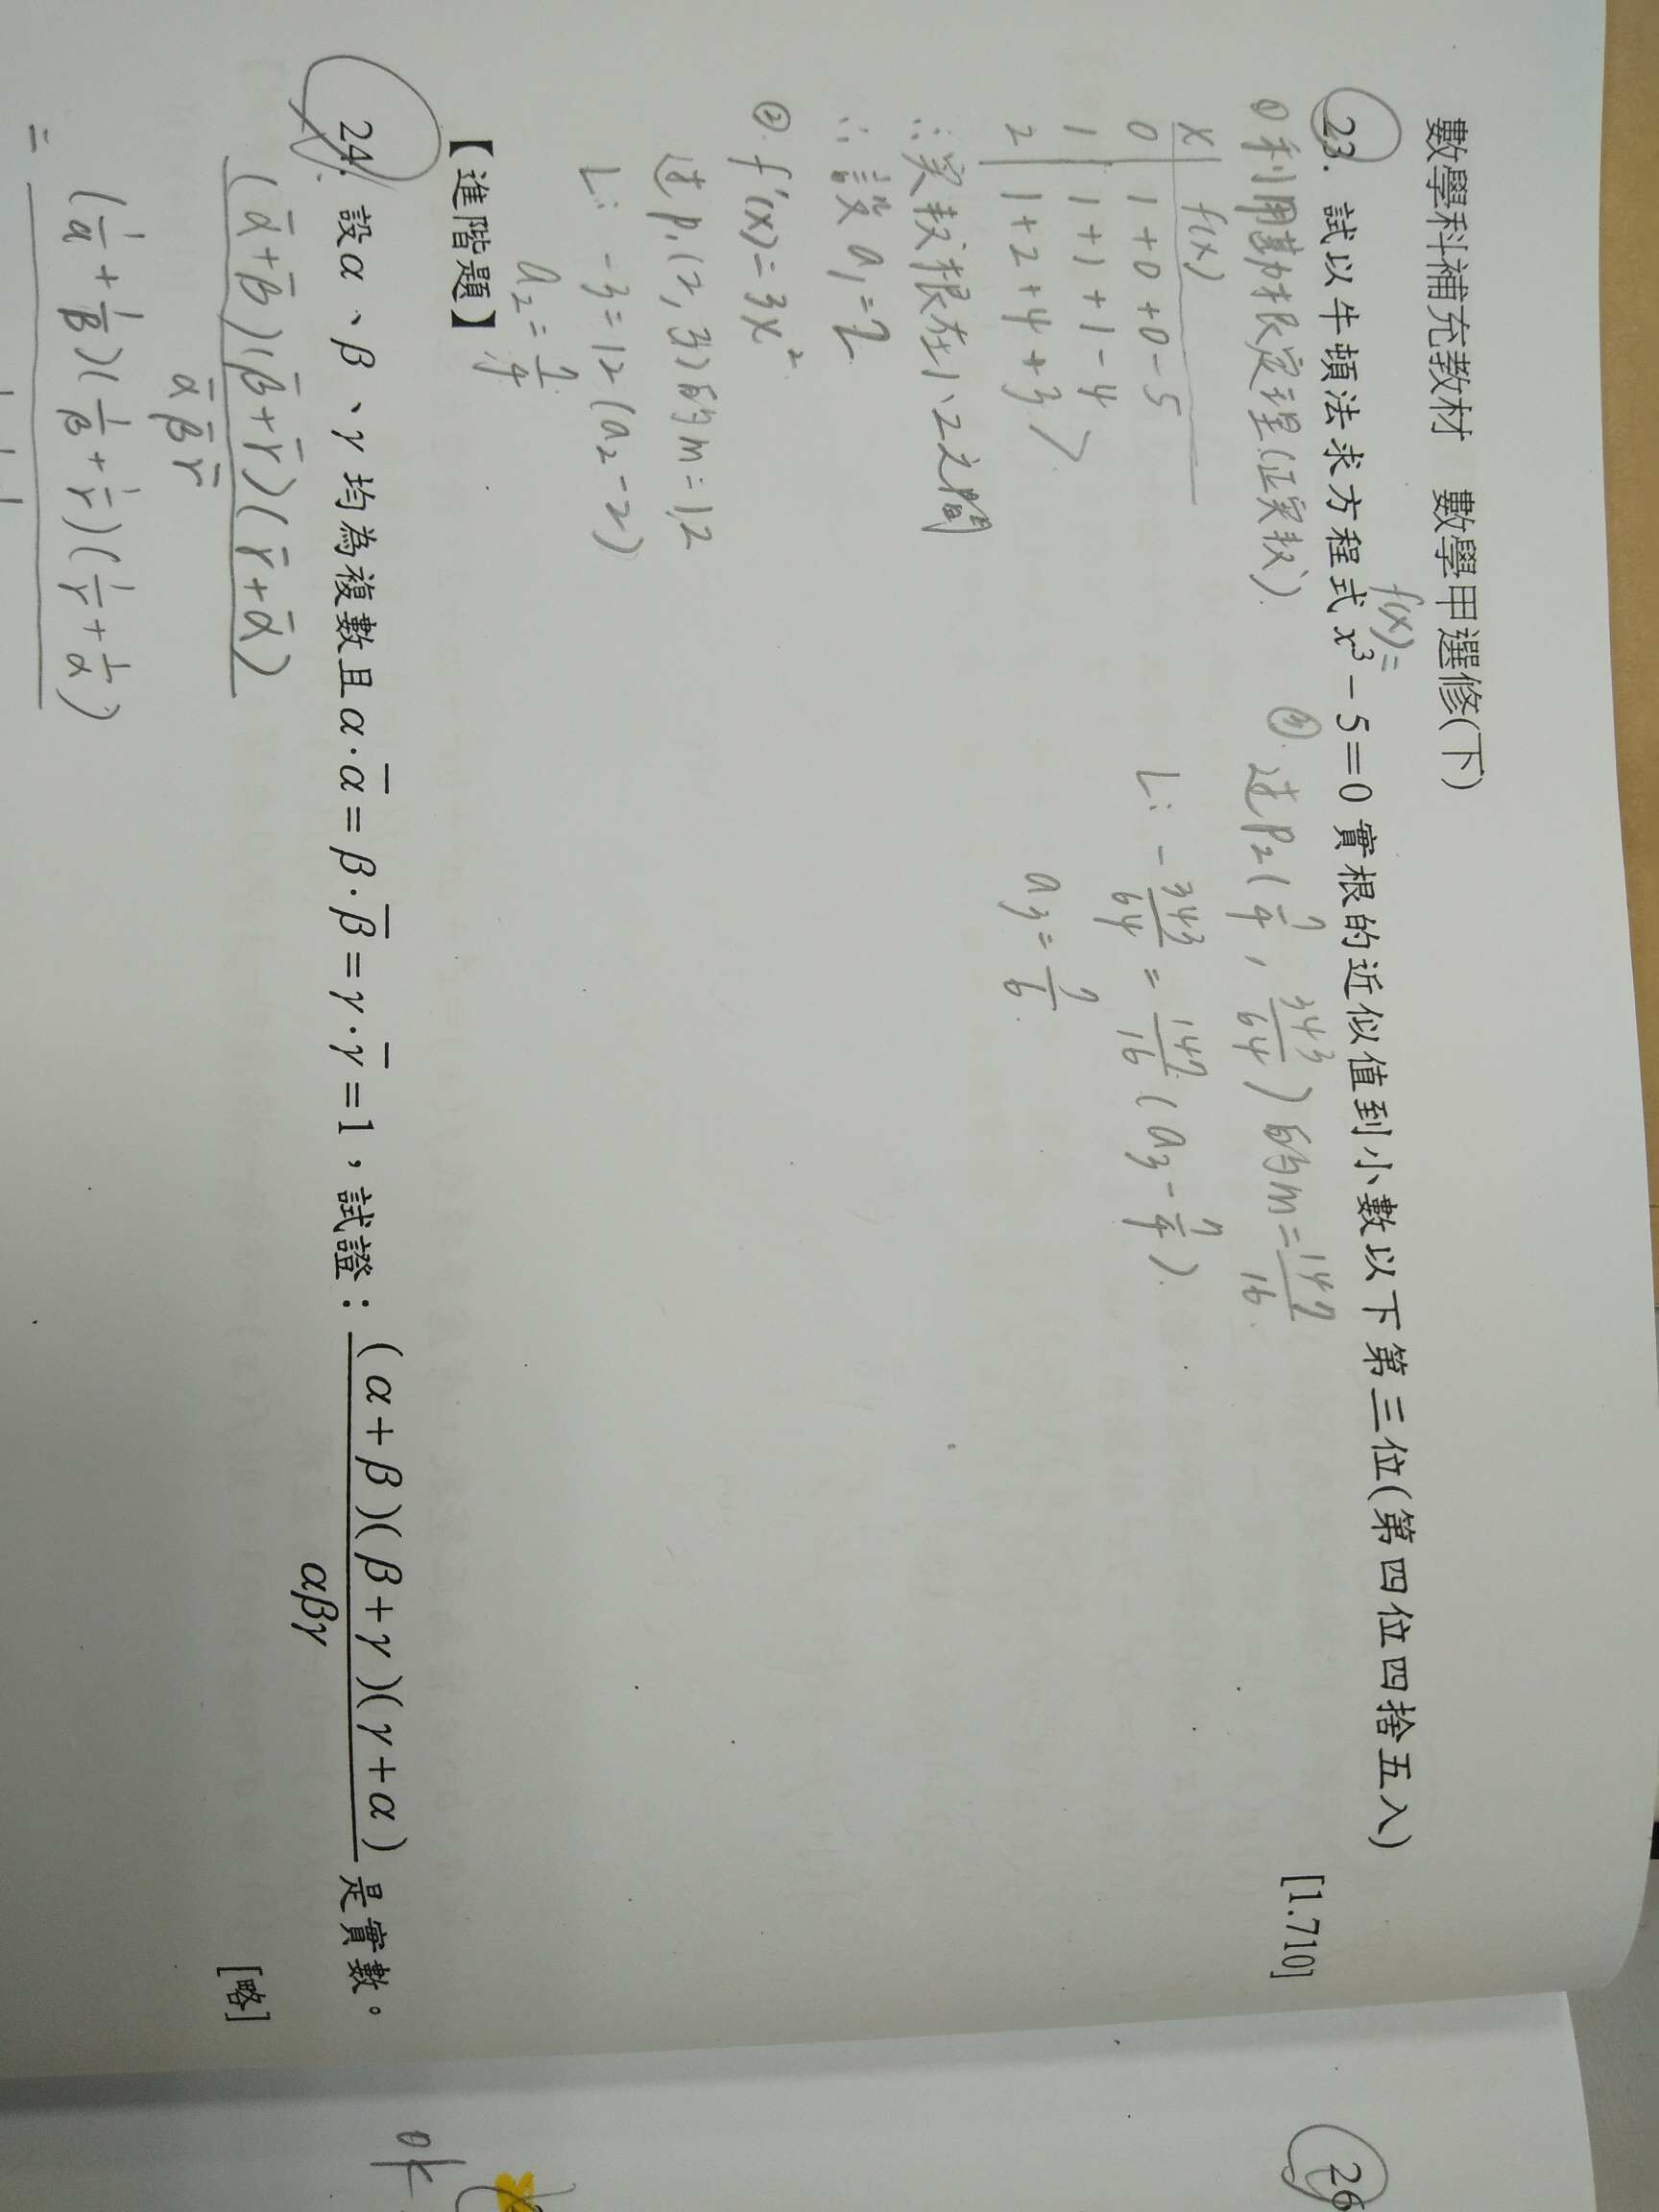 數學科補充教材 數學甲選修(下)
f(x)=
23. 試以牛頓法求方程式 x³－5＝0 實根的近似值到小數以下第三位(第四位四捨五入)
[1.710]
① 利用勘根定理(正実数).
x | f(x)
0 | 1+0+0-5
1 | 1+1+1-4
2 | 1+2+4+3 >
∴実数根在1、2之間
∴設 a₁=2
② f'(x)=3x²
过P₁(2,3)的m=12
L: -3=12(a₂-2)
a₂=7/4
③ 过P₂(7/4, 343/64)的m=147/16
L: -343/64=147/16(a₃-7/4).
a₃=7/6.
【進階題】
24. 設α、β、γ 均為複數且 α·α̅＝β·β̅＝γ·γ̅＝1，試證：(α＋β)(β＋γ)(γ＋α)/αβγ 是實數。
[略]
(α̅+β̅)(β̅+γ̅)(γ̅+α̅)
α̅β̅γ̅
= (1/α+1/β)(1/β+1/γ)(1/γ+1/α)
26